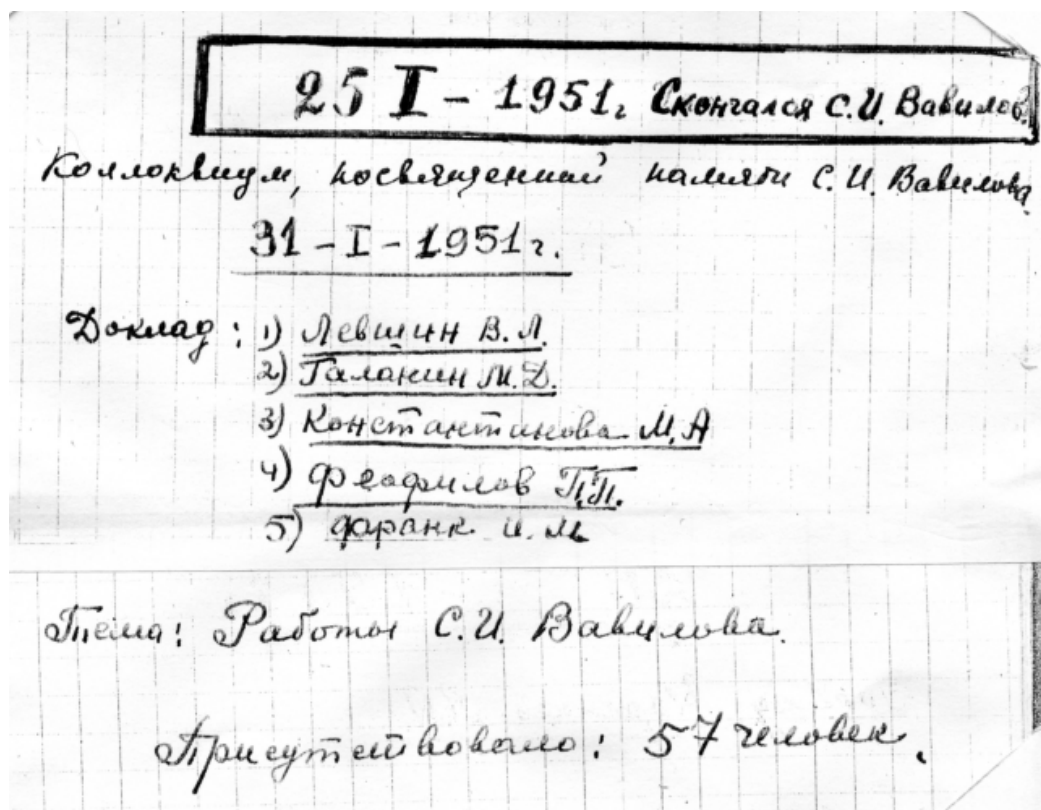 25 I - 1951г. Скончался С.И. Вавилов.
Коллоквиум, посвященный памяти С.И. Вавилова.
31 - I - 1951г.
Доклад: 1) Левшин В.Л.
2) Галанин М.Д.
3) Константинова М.А
4) Феофилов П.П.
5) Франк И.М
Тема: Работы С.И. Вавилова.
Присутствовало: 57 человек.